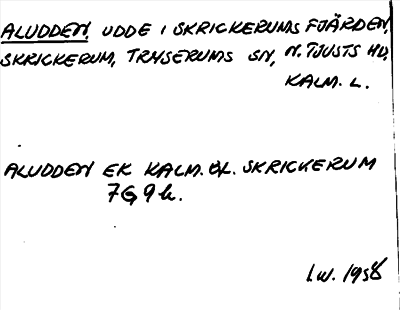 ALUDDEN, UDDE I SKRICKERUMS FJÄRDEN,
SKRICKERUM, TRYSERUMS SN, N. TJUSTS HD,
KALM. L.
ALUDDEN EK KALM. BL. SKRICKERUM
7G 9h.
I.W. 1958